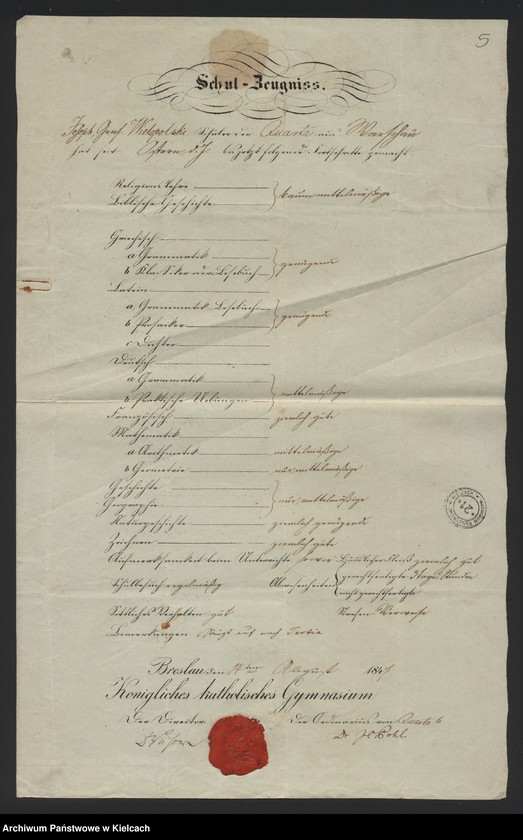 5
Schul-Zeugniss.
Joseph Graf Wielopolski Schüler der Quarta aus Warschau
hat seit Ostern d. J. bis jetzt folgende Fortschritte gemacht
Religionslehre
Biblische Geschichte } kaum mittelmäßige
Griechisch
a Grammatik
b oder Lesebuch } genügende
Latein
a Grammatik. Lesebuch
b Prosaiker } genügende
c Dichter
Deutsch
a Grammatik
b Praktische Uebungen } mittelmäßige
Französisch ziemlich gute
Mathematik
a Arithmetik mittelmäßige
b Geometrie nur mittelmäßige
Geschichte
Geographie } nur mittelmäßige
Naturgeschichte ziemlich genügende
Zeichnen ziemlich gute
Aufmerksamkeit beim Unterrichte Häuslicher Fleiß ziemlich gut
Schulbesuch regelmäßig Abwesenheiten { gerechtfertigte Tage Stunden
nicht gerechtfertigte
Sittliches Verhalten gut Strafen Verweise
Bemerkungen Steigt auf nach Tertia
Breslau den August 184
Königliches katholisches Gymnasium
Der Director. Der Ordinarius von Quarta b
Dr Pohl
Archiwum Państwowe w Kielcach